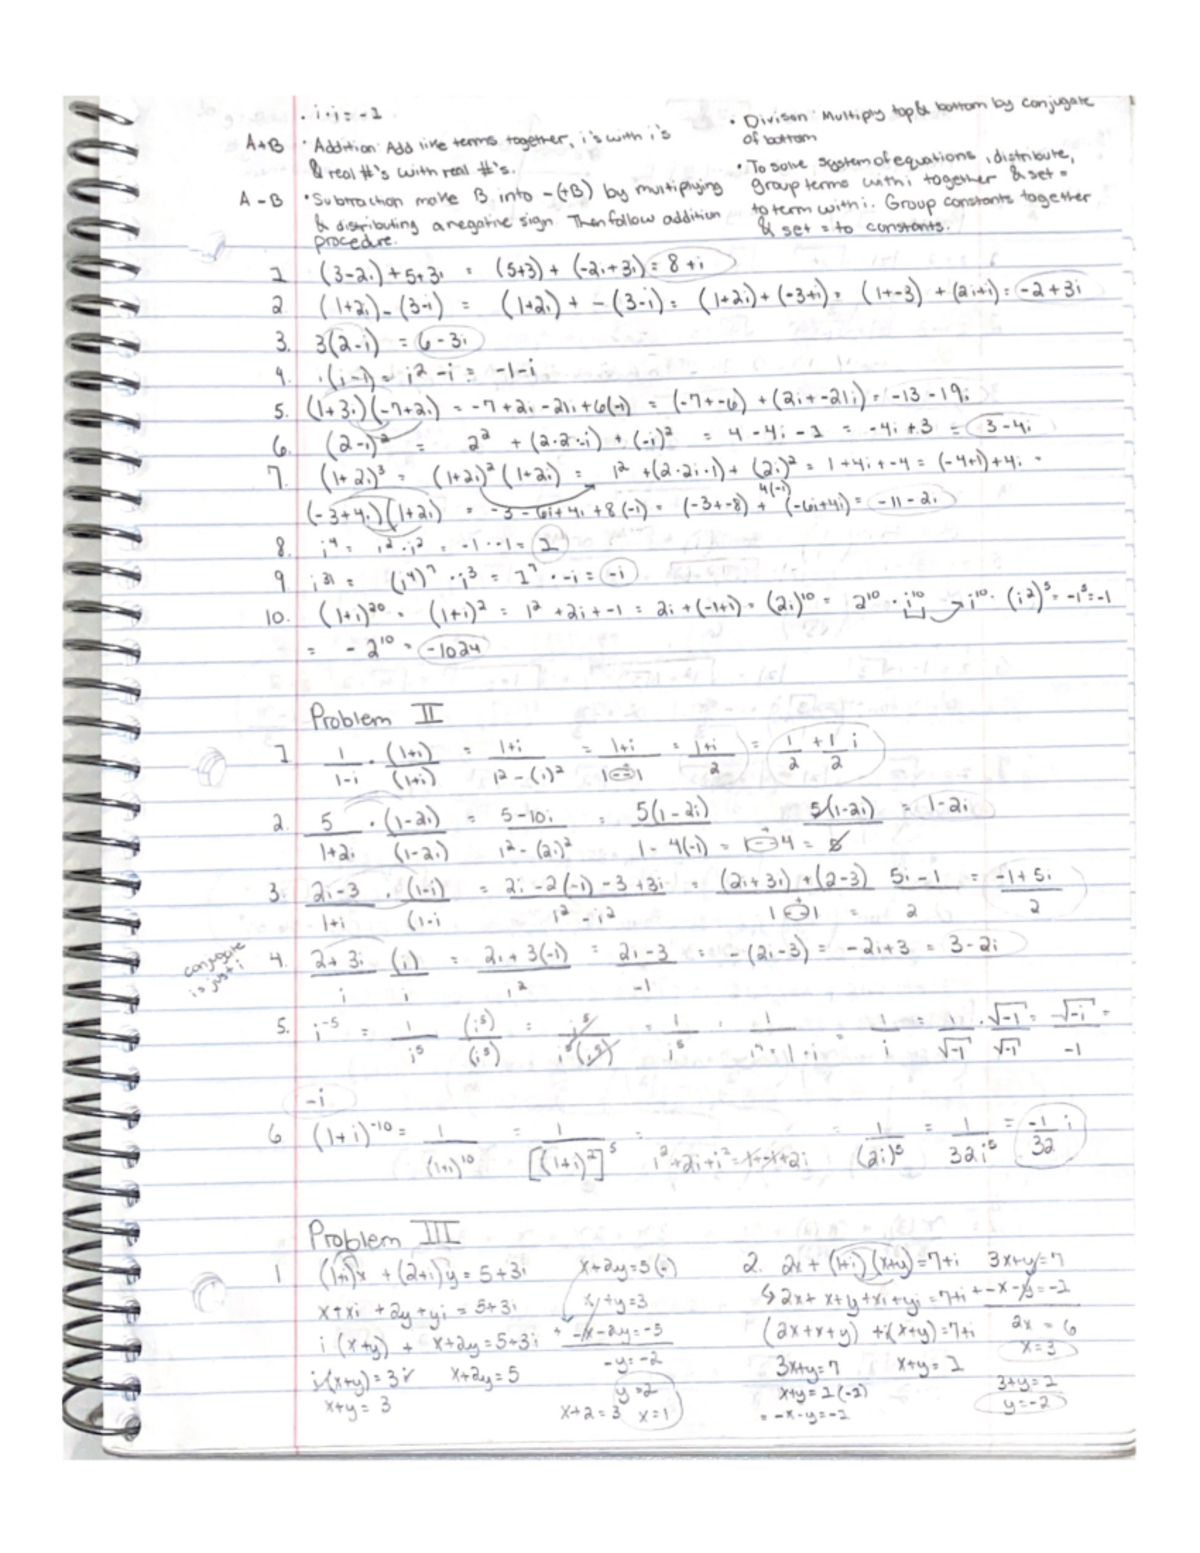 · i·i = -1
A+B · Addition: Add like terms together, i's with i's
& real #'s with real #'s.
A-B · Subtraction make B into -(+B) by multiplying
& distributing a negative sign. Then follow addition
procedure.
· Divison: Multiply top & bottom by conjugate
of bottom
· To solve system of equations, distribute,
group terms with i together & set =
to term with i. Group constants together
& set = to constants.
1 (3-2i)+5+3i = (5+3) + (-2i+3i) = 8+i
2 (1+2i)-(3-i) = (1+2i) + -(3-i) = (1+2i)+(-3+i) = (1+-3) + (2i+i) = -2+3i
3. 3(2-i) = 6-3i
4. i(i-1) = i² -i = -1-i
5. (1+3i)(-7+2i) = -7+2i-21i+6(-1) = (-7+-6) + (2i+-21i) = -13-19i
6. (2-i)² = 2² + (2·2·-i) + (-i)² = 4-4i-1 = -4i+3 = 3-4i
7. (1+2i)³ = (1+2i)²(1+2i) = 1² +(2·2i·1) + (2i)² = 1+4i+-4 = (-4+1)+4i =
4(-1)
(-3+4i)(1+2i) = -3-6i+4i+8(-1) = (-3+-8) + (-6i+4i) = -11-2i
8. i⁴ = i²·i² = -1·-1 = 1
9 i³¹ = (i⁴)⁷ · i³ = 1⁷ · -i = -i
10. (1+i)²⁰ = (1+i)² = 1² +2i+-1 = 2i+(-1+1) = (2i)¹⁰ = 2¹⁰ · i¹⁰ → i¹⁰ = (i²)⁵ = -1⁵ = -1
= -2¹⁰ = -1024
Problem II
1 1/(1-i) · (1+i)/(1+i) = (1+i)/(1²-(i)²) = (1+i)/(1--1) = (1+i)/2 = 1/2 + 1/2 i
2. 5/(1+2i) · (1-2i)/(1-2i) = (5-10i)/(1²-(2i)²) = 5(1-2i)/(1-4(-1)) = 1--4 = 5 5(1-2i) = 1-2i
3. (2i-3)/(1+i) · (1-i)/(1-i = (2i-2(-1)-3+3i)/(1²-i²) = ((2i+3i)+(2-3))/(1--1) = (5i-1)/2 = (-1+5i)/2
conjugate
is just i
4. (2+3i)/i (i)/i = (2i+3(-1))/i² = (2i-3)/-1 = -(2i-3) = -2i+3 = 3-2i
5. i⁻⁵ = 1/i⁵ (i⁵)/(i⁵) = i⁵/(i⁵(i⁵)) = 1/i⁵ · 1/(i⁴=1·i) = 1/i = 1/√-1 · √-1/√-1 = √-i/-1 =
-i
6 (1+i)⁻¹⁰ = 1/(1+i)¹⁰ = 1/[(1+i)²]⁵ = 1²+2i+i² = 1+-1+2i = 1/(2i)⁵ = 1/32i⁵ = -1/32 i
Problem III
1 (1+i)x + (2+i)y = 5+3i
x+xi +2y+yi = 5+3i
i(x+y) + x+2y = 5+3i
i(x+y) = 3i x+2y = 5
x+y = 3
x+2y = 5(-)
x+y = 3
+ -x-2y = -5
-y = -2
y = 2
x+2 = 3 x = 1
2. 2x + (1+i)(x+y) = 7+i
↳ 2x+ x+y+xi+yi = 7+i
(2x+x+y) +i(x+y) = 7+i
3x+y = 7 x+y = 1
x+y = 1(-1)
= -x-y = -1
3x+y = 7
+ -x-y = -1
2x = 6
x = 3
3+y = 1
y = -2